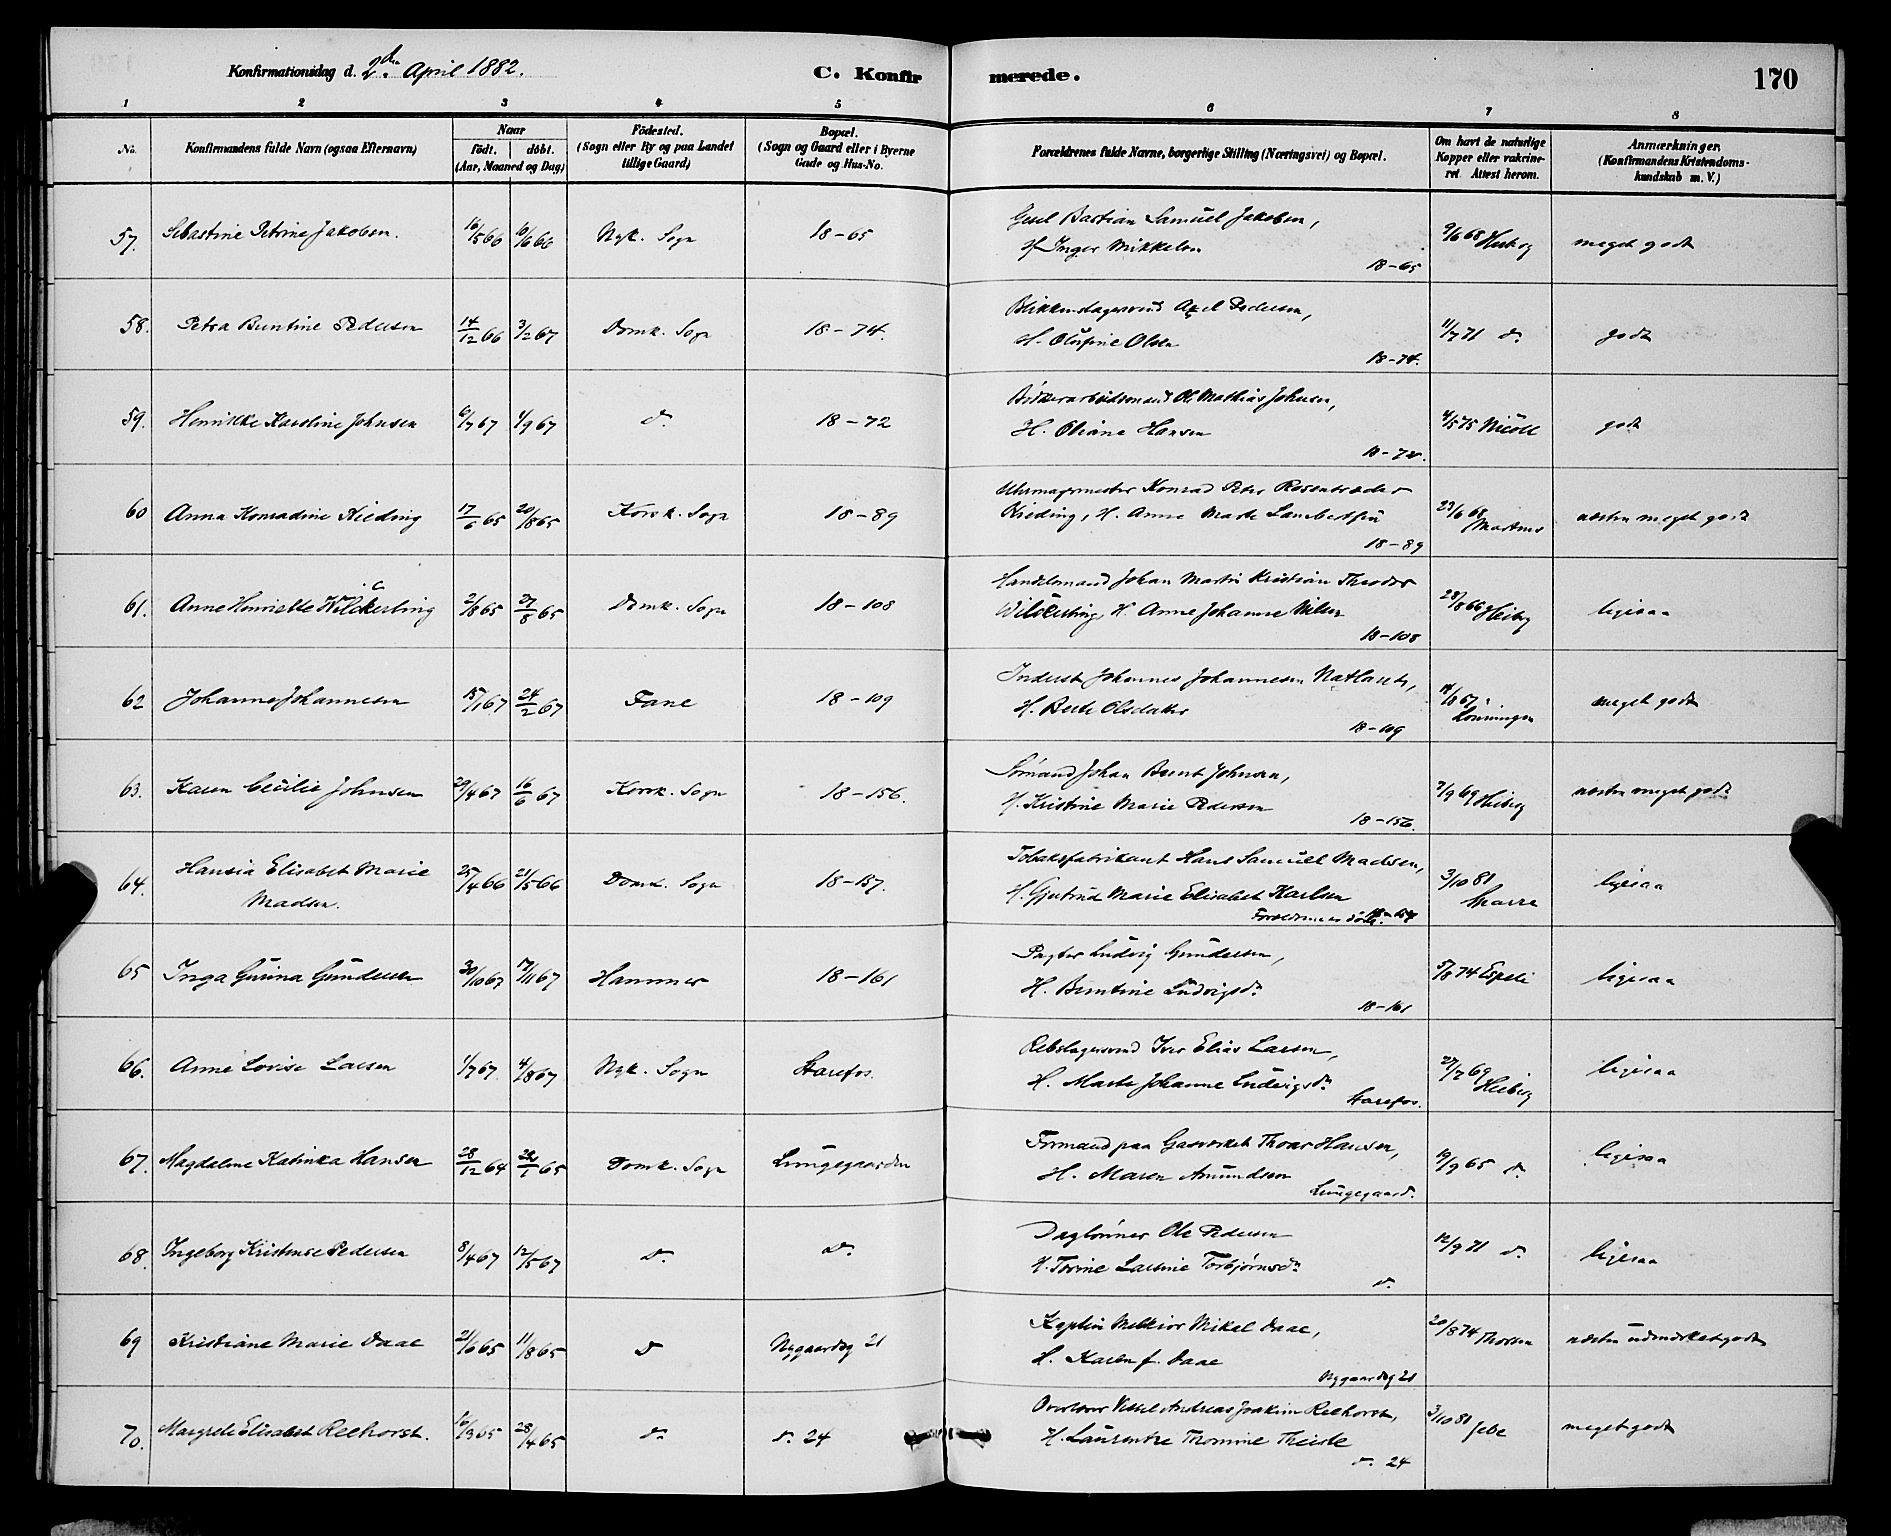 Konfirmationsdag d. 2den April 1882.
C. Konfir merede.
170
1 2 3 4 5 6 7 8
No.
Konfirmandens fulde Navn (ogsaa Efternavn)
Naar
födt. döbt.
(Aar, Maaned og Dag)
Födested.
(Sogn eller By og paa Landet
tillige Gaard)
Bopæl.
(Sogn og Gaard eller i Byerne
Gade og Hus-No.
Forældrenes fulde Navne, borgerlige Stilling (Næringsvei) og Bopæl.
Om havt de naturlige
Kopper eller vakcine-
ret. Attest herom.
Anmærkninger.
(Konfirmandens Kristendoms-
kundskab m. V.)
57. Sebastine Petrine Jakobsen. 16/5 66 10/6 66 Nyk. Sogn 18-65
Bastian Samuel Jakobsen,
H. Inger Mikkelsen
18-65
9/6 68 meget godt
58. Petra Berntine Pedersen 14/12 66 3/2 67 Domk. Sogn 18-74.
Blikkenslagersvend Axel Pedersen,
H. Olufine Olsen
18-74.
11/7 71 do godt
59. Henrikke Karoline Johnsen 6/7 67 1/9 67 do 18-72
Ole Mathias Johnsen,
H. Oliane Hansen
18-72.
4/5 75 godt
60 Anna Konradine Kieding 17/6 65 20/8 65 Korsk. Sogn 18-89
Uhrmagermester Konrad Peter Rosentræder
Kieding, H. Anne Marte Lambertsen
18-89
23/6 68 Martens næsten meget godt
61. Anne Henriette Wilckerling 2/8 65 27/8 65 Domk. Sogn 18-108
Handelsmand Johan Martin Kristian Theodor
Wilckerling, H. Anne Johanne Nilsen
18-108
28/8 66 Heiberg ligesaa
62 Johanne Johannesen 15/1 67 24/2 67 Fane 18-109
Inderst Johannes Johannesen Natland,
H. Berte Olsdatter
18-109
Lönningen meget godt
63. Karen Cecilie Johnsen 29/4 67 16/6 67 Korsk. Sogn 18-156.
Sömand Johan Bernt Johnsen,
H. Kristine Marie Pedersen
18-156.
7/9 69 Heiberg næsten meget godt
64. Hansia Elisabet Marie
Madsen. 25/4 66 21/5 66 Domk. Sogn 18-157.
Tobaksfabrikant Hans Samuel Madsen,
H. Gjertrud Marie Elisabet Karlsen
Forældrene döde.
3/10 81 ligesaa
65 Inga Gurina Gundersen 30/10 67 17/11 67 Hammer 18-161
Pagter Ludvig Gundersen,
H. Berntine Ludvigsdr
18-161
5/8 74 Espeli ligesaa
66. Anne Lovise Larsen 1/7 67. 4/8 67 Nyk. Sogn Starefos.
Rebslagersvend Iver Elias Larsen,
H. Marte Johanne Ludvigsdr
Starefos.
27/7 69 Heiberg ligesaa
67. Magdalene Katinka Hansen 28/12 64 22/1 65 Domk. Sogn Lungegaarden
Formand paa Gasværket Thomas Hansen,
H. Maren Amundsen
Lungegaard.
19/9 65 do ligesaa
68. Ingeborg Kristense Pedersen 8/4 67 12/5 67 do do
Daglönner Ole Pedersen
H. Torine Larsine Torbjörnsdr
do
12/9 71 do ligesaa
69 Kristiane Marie Daae 21/6 65 11/8 65 do Nygaardsg 21
Kaptein Melkior Mikal Daae,
H. Karen f. Daae
Nygaardsg 21
20/8 74 næsten udmærket godt
70. Margrete Elisabet Reehorst. 16/3 65 28/4 65 do do 24
Andreas Joakim Reehorst,
H. Laurentze Thomine Theiste
do 24
3/10 81 Jebe meget godt